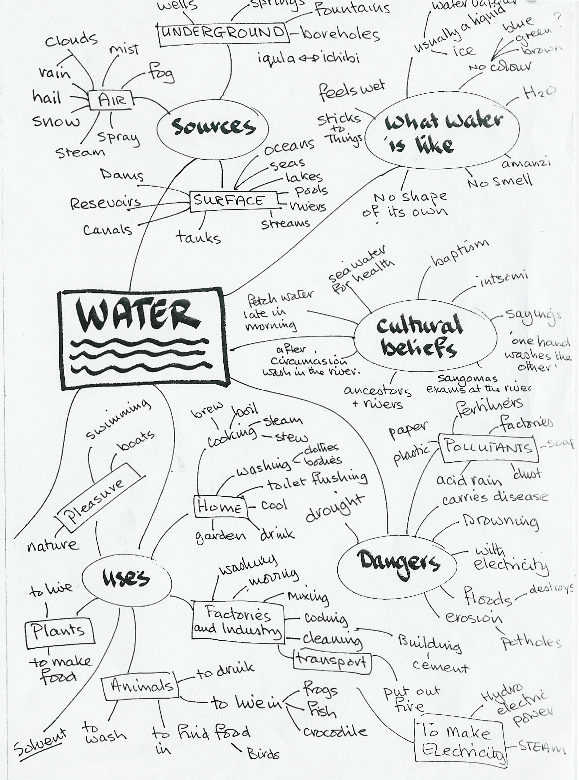 wells
springs
fountains
UNDERGROUND
boreholes
iqula ⇔ ichibi
clouds
mist
fog
rain
hail
snow
AIR
Spray
Steam
Sources
usually a liquid
ice
blue
green ?
brown
NO COLOUR
H2O
feels wet
sticks
to
things
What water
is like
amanzi
No smell
No shape
of its own
Dams
Resevoirs
Canals
tanks
SURFACE
oceans
seas
lakes
pools
rivers
streams
WATER
sea water
for health
baptism
intsomi
Fetch water
late in
morning
Cultural
beliefs
Sayings
'one hand
washes the
other'
after
circumcision
wash in the river.
ancestors
+ rivers
sangomas
exams at the river
swimming
boats
Pleasure
nature
brew
boil
cooking
steam
stew
washing
clothes
bodies
toilet flushing
Home
cool
garden
drink
drought
fertilisers
paper
factories
plastic
POLLUTANTS
soap
acid rain
dust
carries disease
Drowning
with
electricity
Dangers
floods
destroys
erosion
potholes
uses
to live
Plants
to make
food
washing
moving
mixing
Factories
and Industry
cooling
cleaning
transport
Building
cement
put out
fire
Animals
to drink
to live in
frogs
fish
crocodile
to
wash
to find food
in
Birds
Solvent
To Make
Electricity
Hydro
electric
power
STEAM